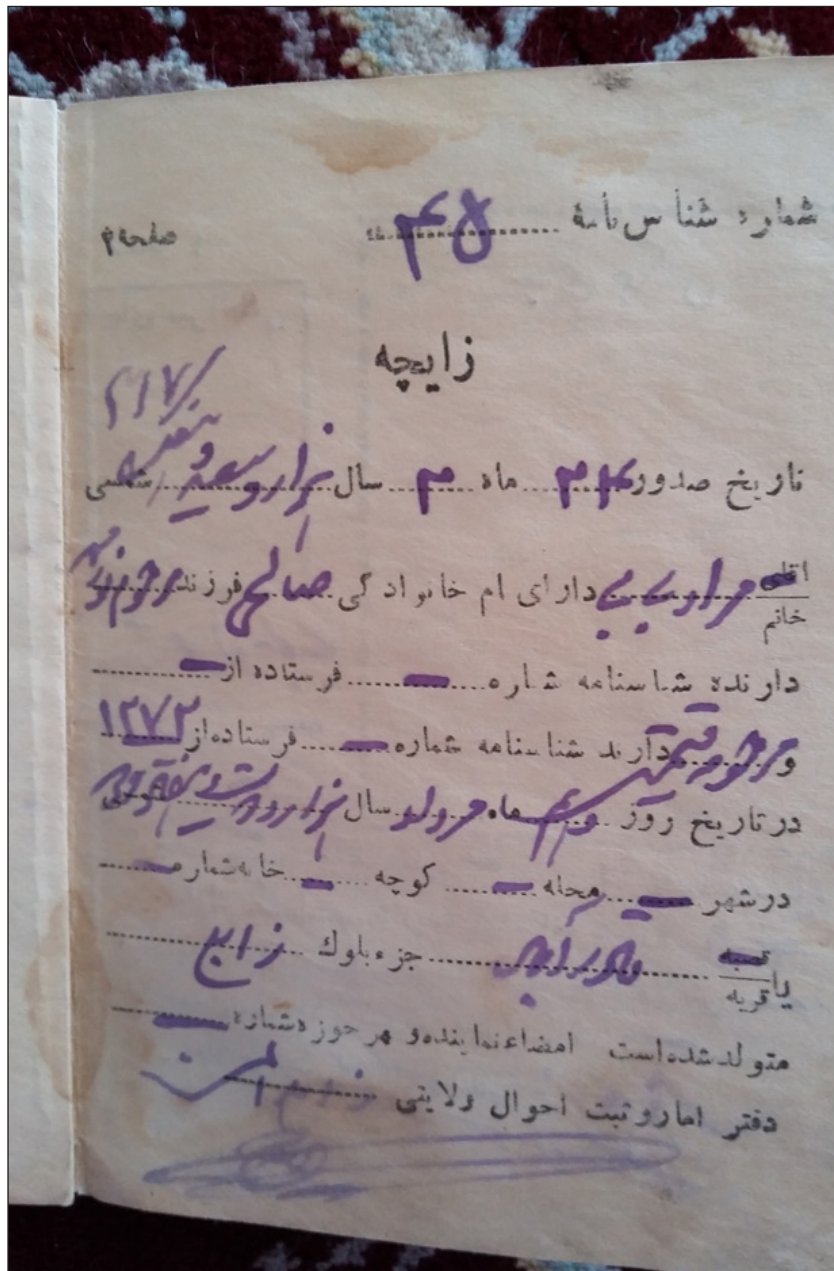 شماره شناسنامهٔ ۴۵
صفحه ۲
زایچه
تاریخ صدور ۲۴ ماه ۳ سال هزار و سیصد و هفده شمسی
اقای
خانم
دارای نام خانوادگی صالحی فرزند مرحوم
دارنده شناسنامه شماره — فرستاده از —
و مرحومه دارند شناسنامه شماره — فرستاده از
۱۲۷۲
در تاریخ روز ماه مرداد سال هزار و دویست و هفتاد و دو شمسی
در شهر — محله — کوچه — خانه شماره —
یا قصبه
قریه
جزء بلوک
متولد شده است امضاء نماینده و مهر حوزه شماره —
دفتر امار و ثبت احوال ولایتی